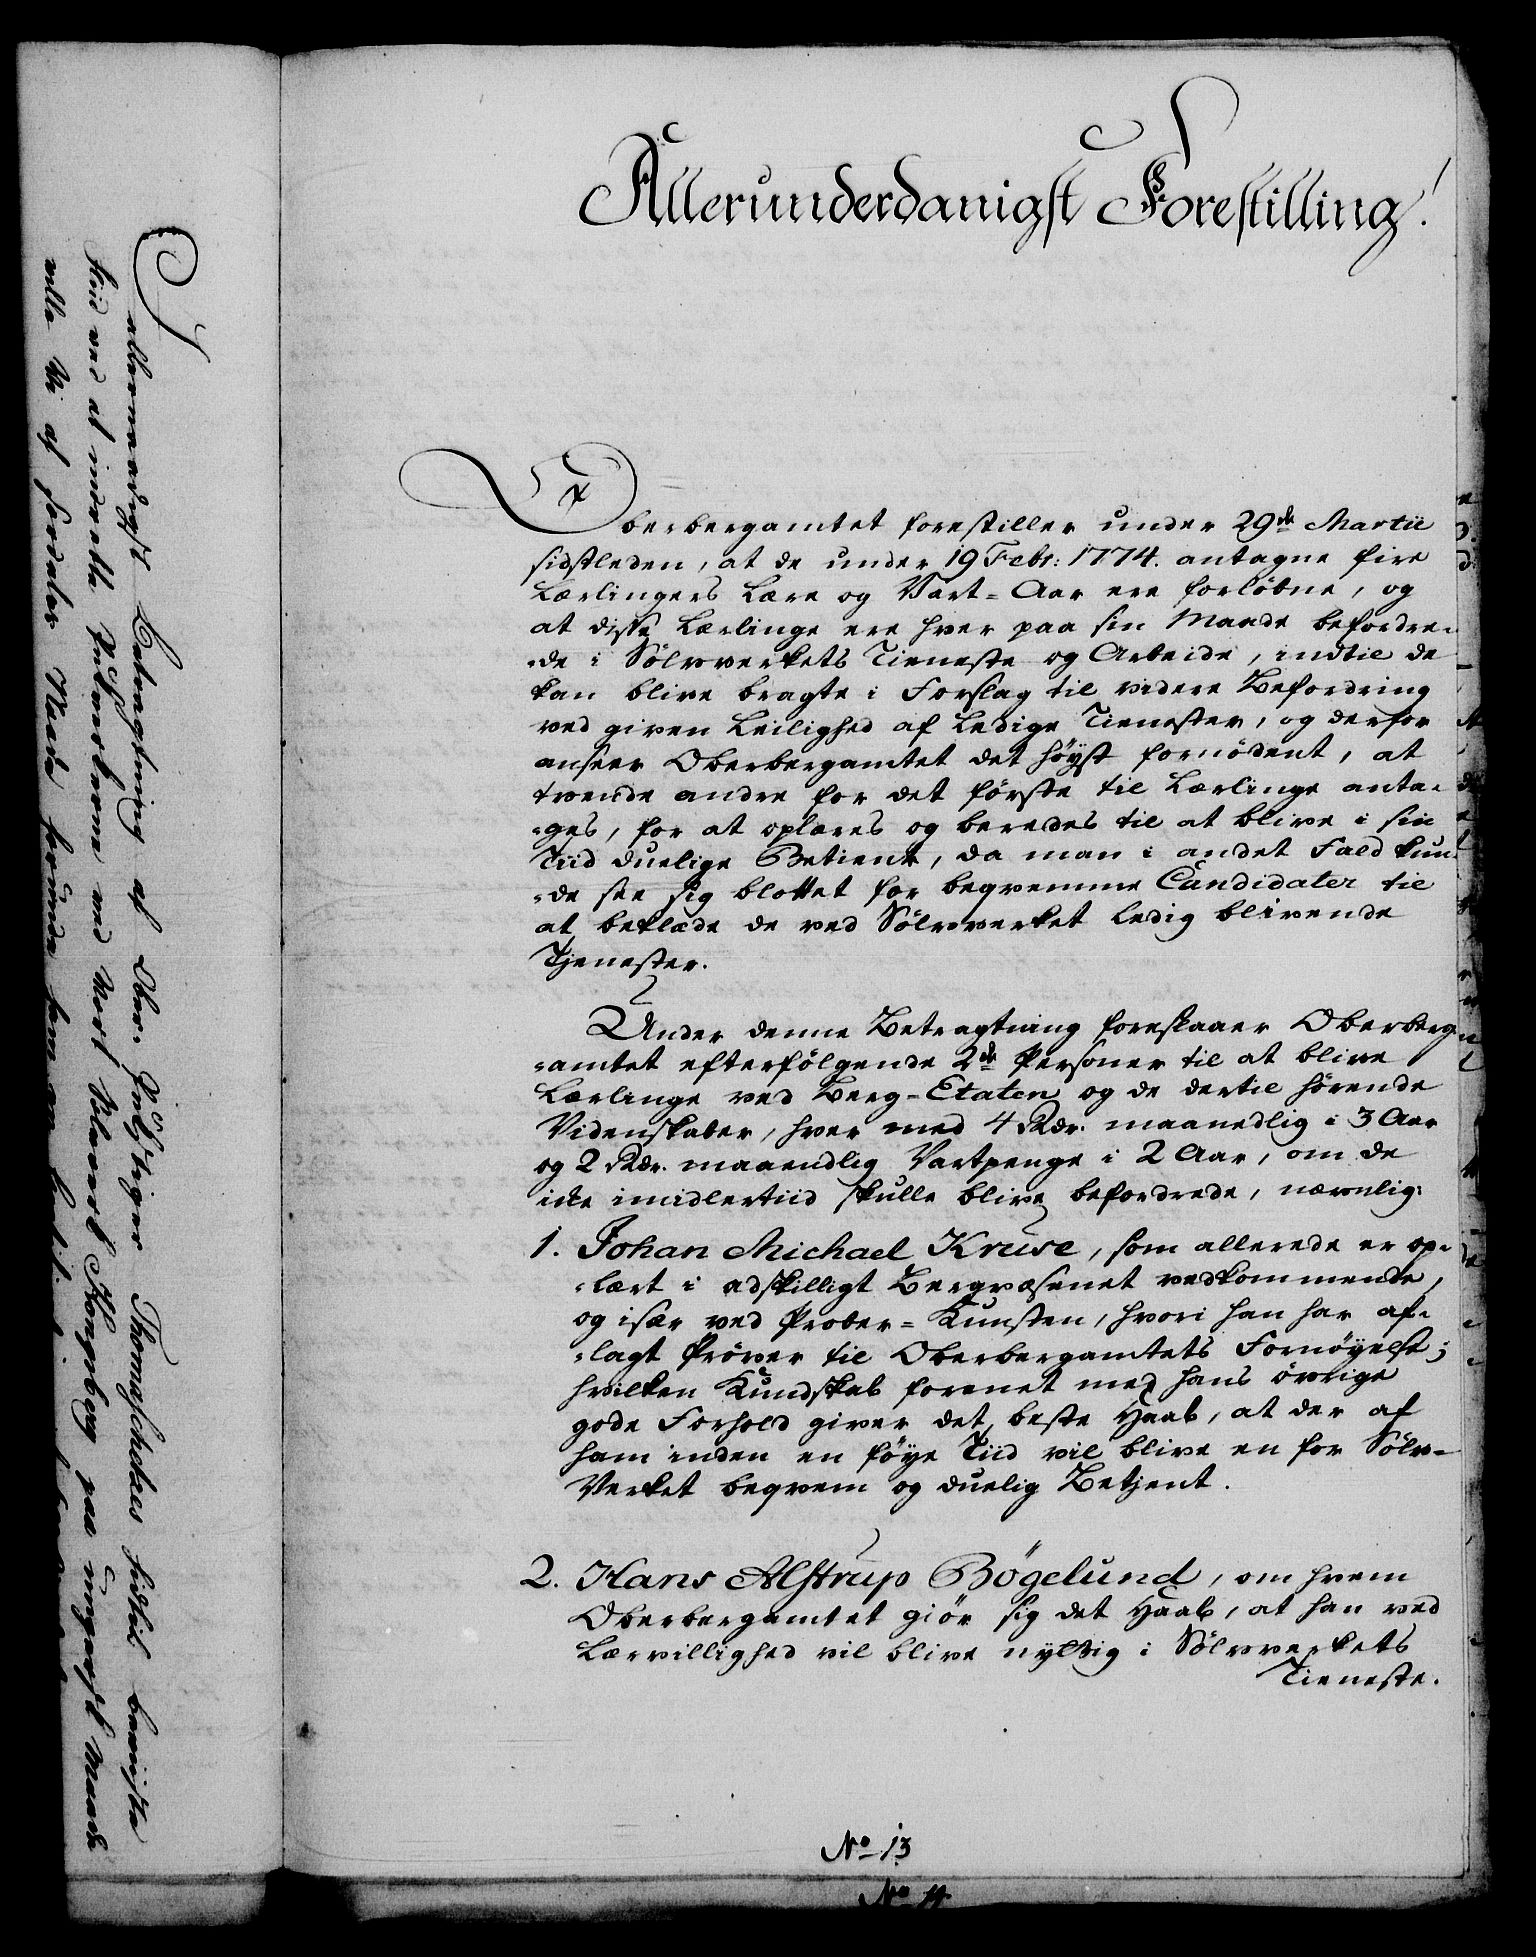 Allerunderdanigst Forestilling!
Oberbergamtet forestiller under 29de Martii
sidstleden, at de under 19 Febr: 1774. antagne fire
Lærlingers Lære og Vart-Aar ere forløbne, og
at disse Lærlinge ere hver paa sin Maade befordre-
-de i Sølvverkets Tieneste og Arbeide, indtil de
kan blive bragte i Forslag til videre Befordring
ved given Leilighed af ledige Tienester, og derfor
anseer Oberbergamtet det höyst fornödent, at
tvende andre for det første til Lærlinge anta-
-ges, for at oplæres og beredes til at blive i sin
Tiid duelige Betiente, da man i andet Fald kun-
-de see sig blottet for beqvemme Candidater til
at beklæde de ved Sølvverket ledig blivende
Tjenester.
Under denne Betragtning foreslaaer Oberberg-
-amtet efterfølgende 2de Personer til at blive
Lærlinge ved Berg-Etaten og de dertil hørende
Videnskaber, hver med 4 Rdr. maanedlig i 3 Aar
og 2 Rdr. maaendlig Vartpenge i 2 Aar, om de
icke imidlertiid skulle blive befordrede, nævnlig:
1. Johan Michael Kruse, som allerede er op-
-lært i adskilligt Bergvæsenet vedkommende,
og især ved Prober-Kunsten, hvori han har af-
-lagt Prøver til Oberbergamtets Fornöyelse;
hvilken Kundskab forenet med hans övrige
gode Forhold giver det beste Haab, at der af
ham inden en föye Tiid vil blive en for Sølv-
Verket beqvem og duelig Betjent.
2. Hans Alstrup Bögelund, om hvem
Oberbergamtet giör sig det Haab, at han ved
Lærvillighed vil blive nyttig i Sølvverkets
Tieneste.
No 13
No 14
I allernaadigst Betragtning af Ober Thomeschekes hidtil beviiste
Fliid ved at indrette ved Vort Sölvverk Kongsberg paa
ville Vi af Naade